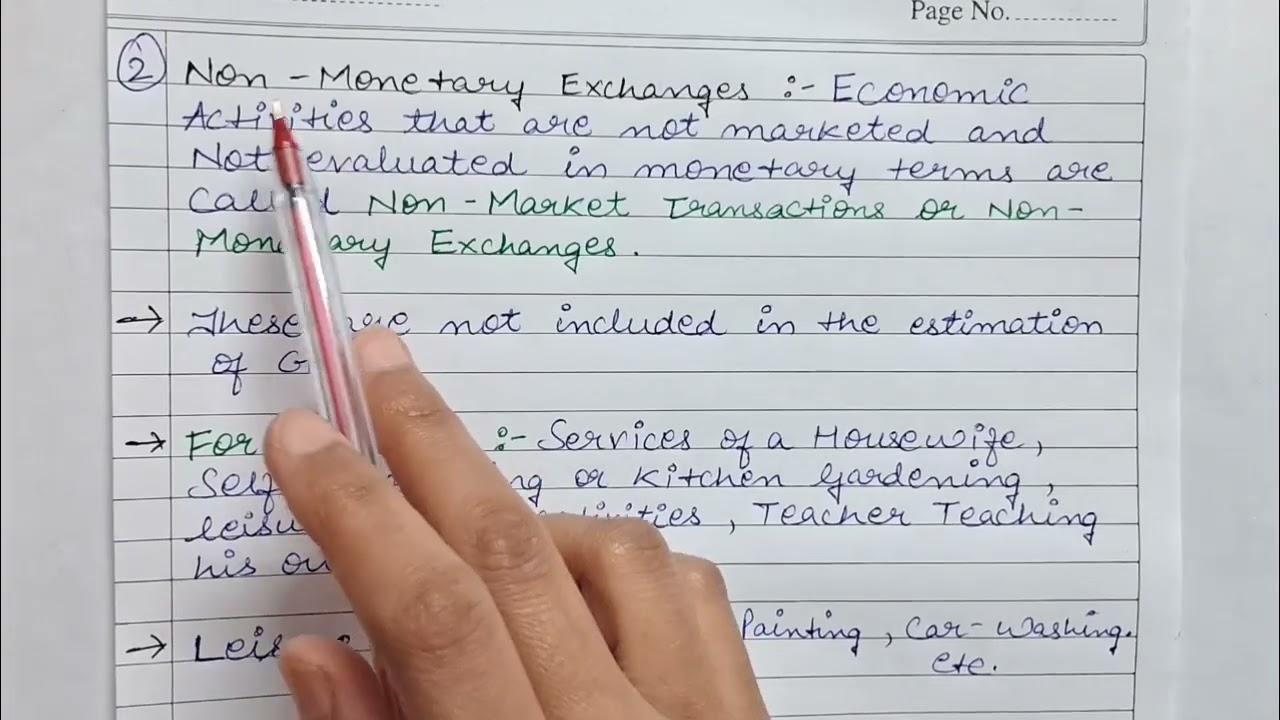 Page No.
② Non-Monetary Exchanges :- Economic
Activities that are not marketed and
Not evaluated in monetary terms are
Called Non-Market Transactions or Non-
Monetary Exchanges.
→ These are not included in the estimation
of
→ For :- Services of a Housewife,
or Kitchen Gardening,
, Teacher Teaching
his
→ Painting, Car-washing.
etc.